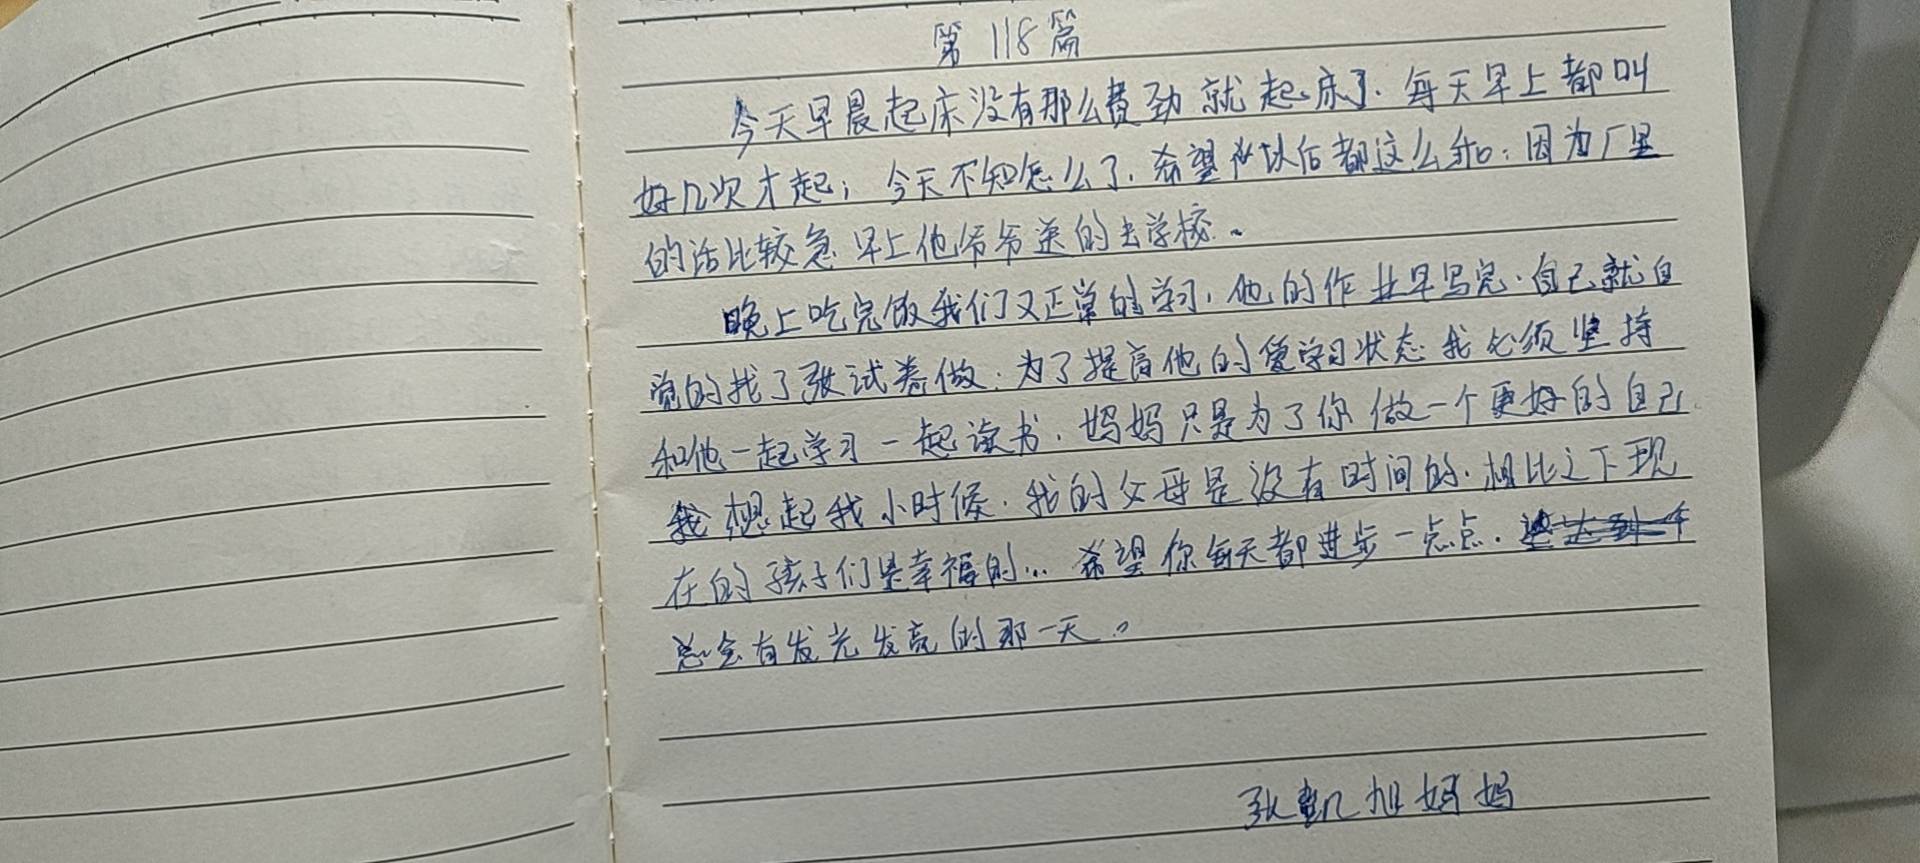 第118篇
今天早晨起床没有那么费劲就起床了.每天早上都叫
好几次才起；今天不知怎么了.希望以后都这么和：因为厂里
的活比较急早上他爷爷送的去学校。
晚上吃完饭我们又正常的学习，他的作业早写完.自己就自
觉的找了张试卷做.为了提高他的爱学习状态我必须坚持
和他一起学习一起读书.妈妈只是为了你做一个更好的自己.
我想起我小时候.我的父母是没有时间的.相比之下现
在的孩子们是幸福的...希望你每天都进步一点点.
总会有发光发亮的那一天。
张凯旭妈妈